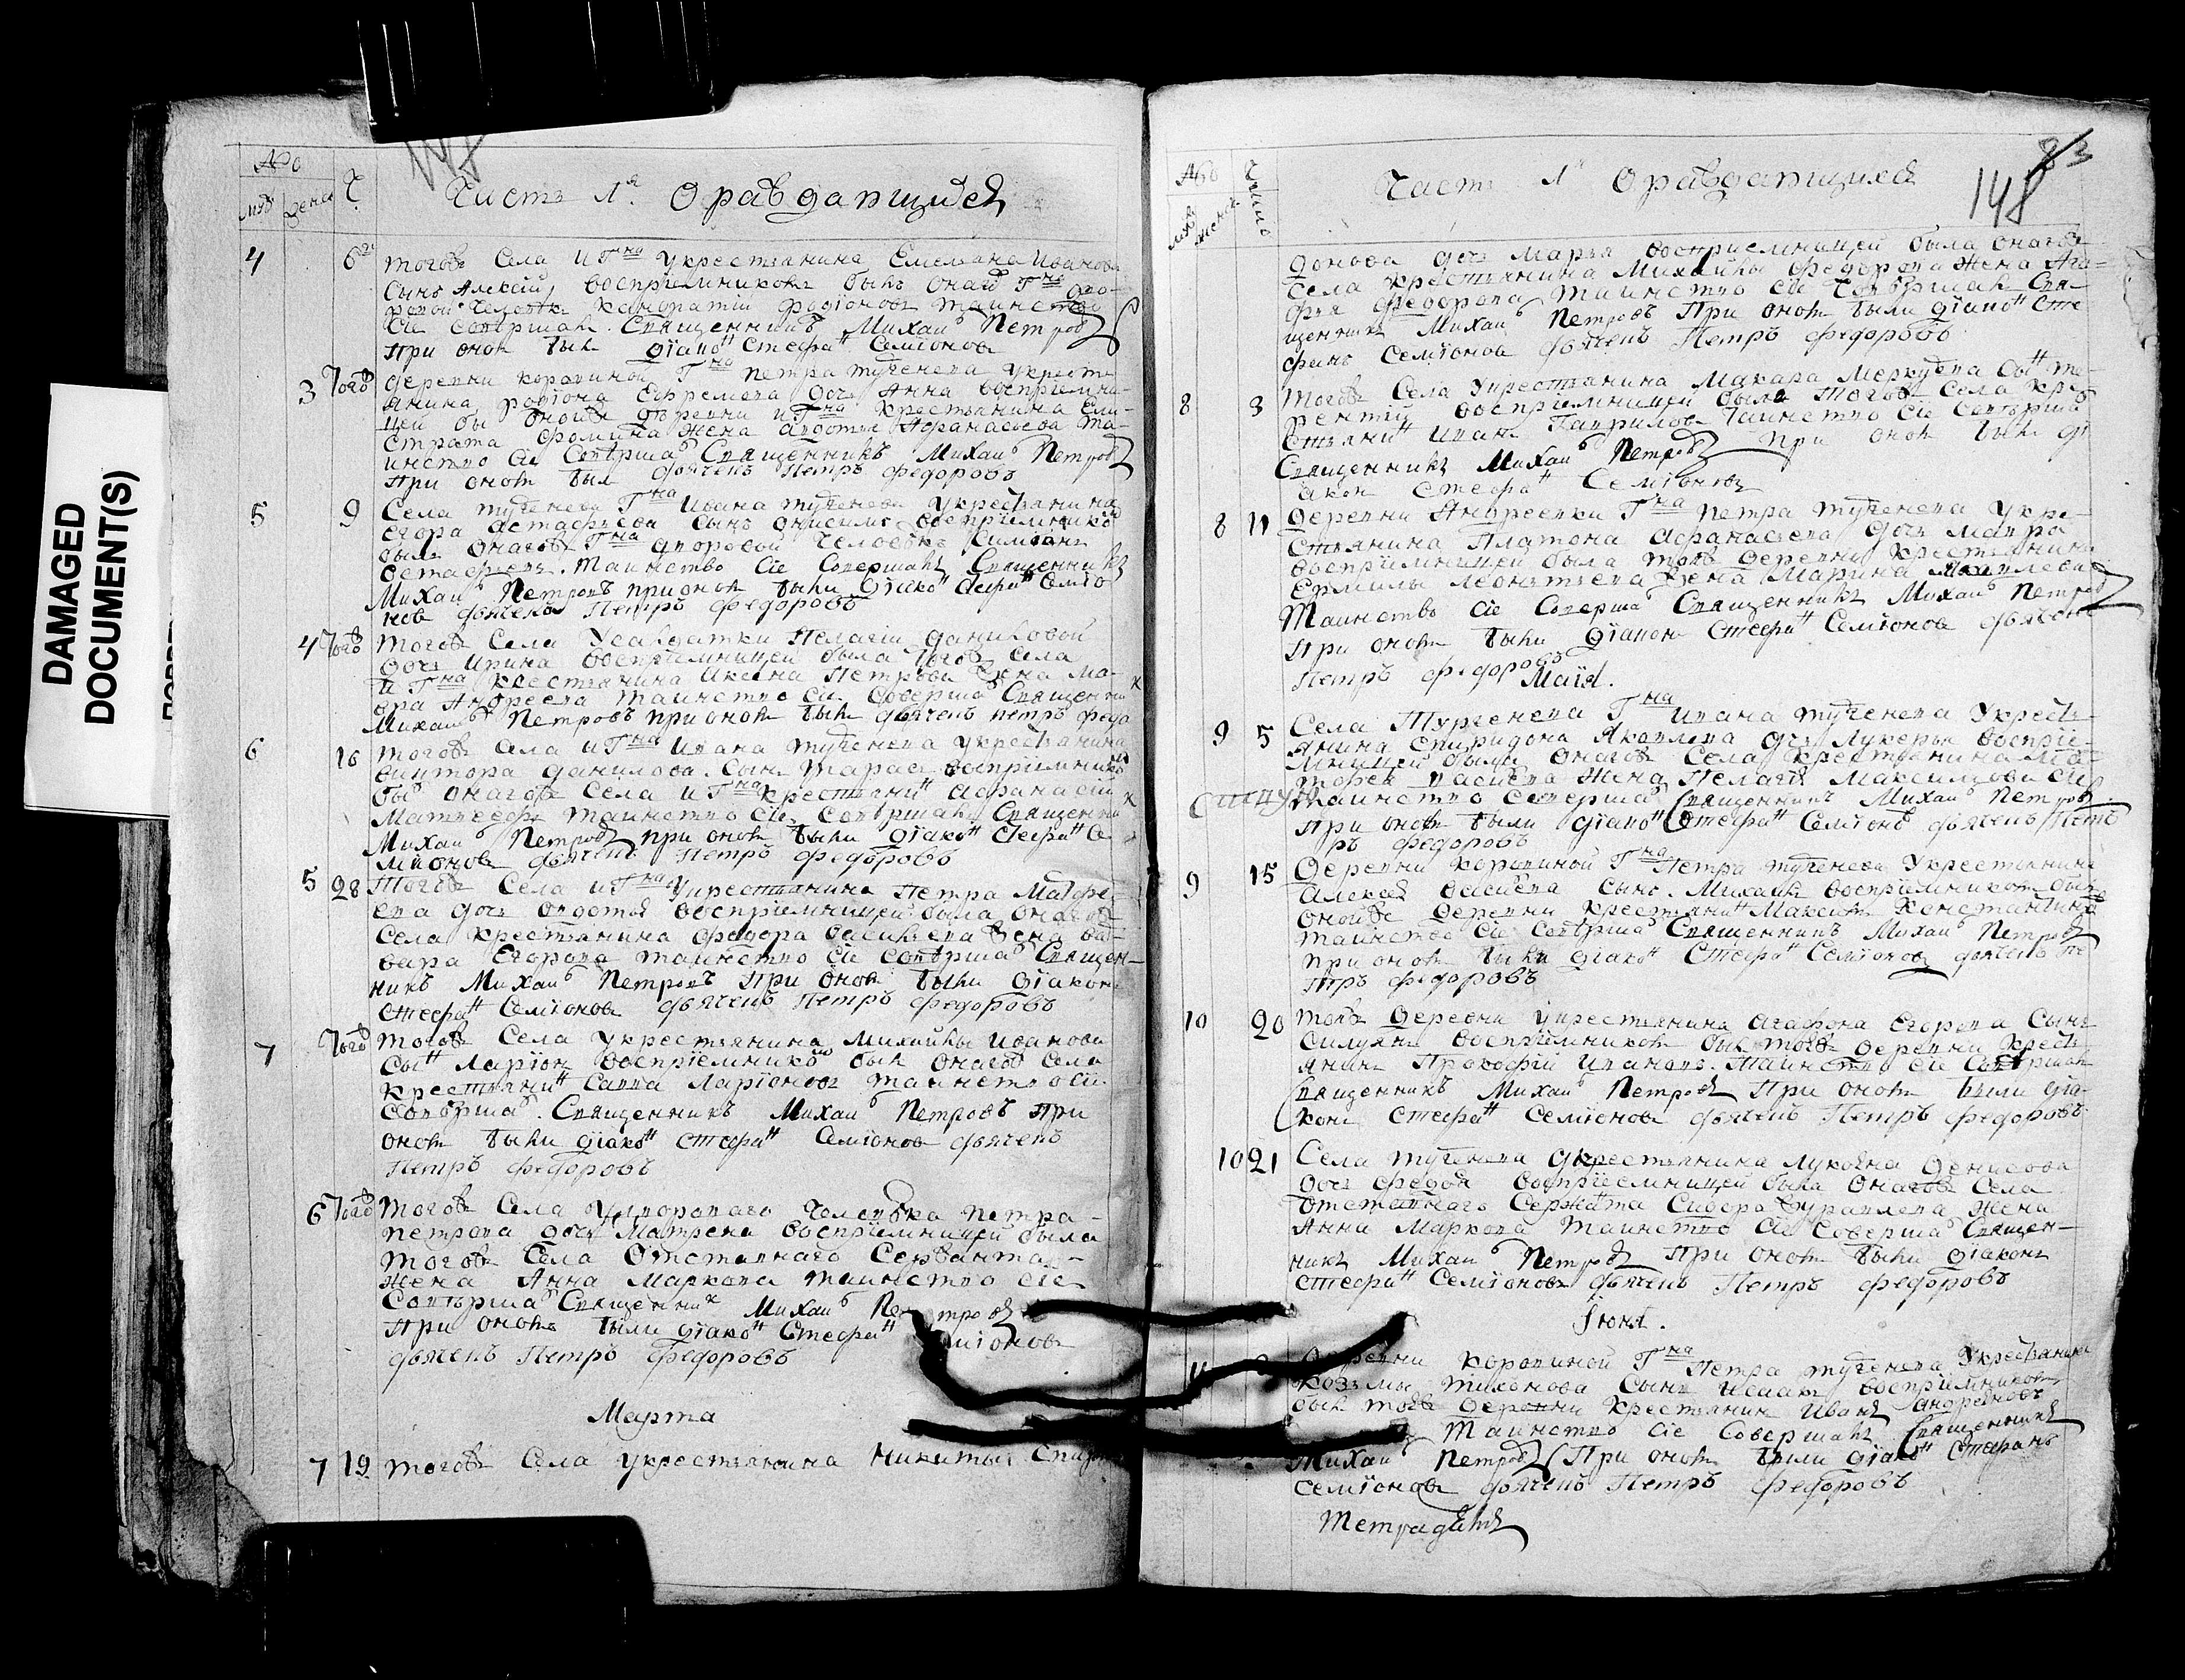 DAMAGED
DOCUMENT(S)
No
Ч
Часть 1я О раждаищихся
4 6го тогоѣ Села и Гна Укрестьянина Емельяна Иванова
Сынъ Алексѣй, воспрiемникомъ былъ онаго Гна дво
ровой человекъ Кандратiй Родiоновъ таинство
Сiе совершалъ Священникъ Михаиъ Петровъ
При ономъ былъ дiаконъ Стефанъ Семiоновъ
3 Того деревни Коровиной Гна Петра Тугенева Укресть
янина Родiона Ефремова дочь Анна воспрiемни
цей бы оной деревни и Гна Крестьянина Ели
страта Фомина жена Авдотья Афанасьева та
инство Сiе Соверша Священникъ Михаиъ Петровъ
При ономъ был дьячекъ Петръ Федоровъ
5 9 Села Тугенева Гна Ивана Тугенева Укрестьянина
Егора Астафьева Сынъ Онисимъ воспрiемникомъ
былъ онагоѣ Гна дворовой человекъ Симiонъ
Остафьевъ. Таинство Сiе Совершалъ Священникъ
Михаиъ Петровъ при ономъ были дiаконъ Стефанъ Семiо
новъ дьячекъ Петръ Федоровъ
4 Того Тогоѣ Села Усалдатки Пелагiи Даниловой
дочь Ирина воспрiемницей была тогоѣ Села
и Гна Крестьянина Петрова жена Ма
вра Андреева таинство Сiе Соверша Священник
Михаиъ Петровъ при ономъ былъ дьячекъ Петръ Федо
6 16 Тогоѣ Села и Гна Ивана Тугенева Укрестьянина
Виктора Данилова. Сынъ Тарасъ воспрiемникомъ
бы онагоѣ Села и Гна Крестьянинъ Афанасiй
Матвеевъ Таинство Сiе Совершалъ Священник
Михаиъ Петровъ при ономъ были дiаконъ Стефанъ Се
мiоновъ дьячекъ Петръ Федоровъ
5 28 Тогоѣ Села и Гна Укрестьянина Петра Матфе
ева дочь Авдотья воспрiемницей была онагоѣ
Села Крестьянина Федора Васильева жена Ва
вара Егорова таинство Сiе Соверша Священ
никъ Михаиъ Петровъ При ономъ были дiаконъ
Стефанъ Семiоновъ дьячекъ Петръ Федоровъ
7 Того Тогоѣ Села Укрестьянина Михайлы Иванова
Сынъ Ларiонъ воспрiемникомъ былъ онагоѣ Села
Крестьянинъ Савва Ларiоновъ таинство Сiе
Соверша. Священникъ Михаиъ Петровъ При
ономъ были дiаконъ Стефанъ Семiоновъ дьячекъ
Петръ Федоровъ
6 Того Тогоѣ Села Удвороваго Человѣка Петра
Петрова дочь Матрена воспрiемницей была
тогоѣ Села Отставнаго Сержанта
жена Анна Маркова таинство Сiе
Соверша Священник Михаиъ Петровъ
При ономъ были дiаконъ Стефанъ Семiоновъ
дьячекъ Петръ Федоровъ
Марта
7 19 Тогоѣ Села Укрестьянина Никиты Спири
No
Число
Часть 1я О раждаищихся
83
148
донова дочь Марья воспрiемницей была онагоѣ
Села крестьянина Михайлы Федорова жена Ага
фья Федорова таинство Сiе Совершалъ Свя
щенникъ Михаиъ Петровъ При ономъ были дiаконъ Сте
фанъ Семiоновъ дьячекъ Петръ Федоровъ
8 3 Тогоѣ Села Укрестьянина Макара Меркулева Сынъ Те
рентiй воспрiемницей была Тогоѣ Села Кре
стьянинъ Иванъ Гавриловъ Таинство Сiе Соверша
Священникъ Михаиъ Петровъ при ономъ былъ дi
аконъ Стефанъ Семiоновъ
8 11 Деревни Андреевки Гна Петра Тугенева Укре
стьянина Платона Афанасьева дочь Мавра
воспрiемницей была тояѣ деревни Крестьянина
Ермилы Леонтьева жена Марина Яковлева
Таинство Сiе Соверша Священникъ Михаиъ Петровъ
При ономъ были дiаконъ Стефанъ Семiоновъ дьячекъ
Петръ Федоровъ
Маiя.
9 5 Села Тургенева Гна Ивана Тугенева Укресть
янина Спиридона Яковлева дочь Лукерья воспрiе
мницей была онагоѣ Села Крестьянина Ма
васильева жена Пелагея Максимова Сiе
таинство Соверша Священникъ Михаиъ Петровъ
При ономъ были дiаконъ Стефанъ Семiоновъ дьячекъ Пет
ръ Федоровъ
9 15 Деревни Коровиной Гна Петра Тугенева Укрестьянина
Алексея Васильева Сынъ. Михаилъ воспрiемникомъ былъ
оной деревни крестьянинъ Максимъ Константиновъ
Таинство Сiе Соверша Священникъ Михаиъ Петровъ
При ономъ были дiаконъ Стефанъ Семiоновъ дьячекъ Пе
тръ Федоровъ
10 20 Тояѣ Деревни Укрестьянина Агафона Егорова Сынъ
Силуянъ воспрiемникомъ былъ тояѣ деревни Кресть
янинъ Прокофiй Ивановъ. Таинство Сiе Совершалъ
Священникъ Михаиъ Петровъ При ономъ были дiа
конъ Стефанъ Семiоновъ дьячекъ Петръ Федоровъ
10 21 Села Тугенева Укрестьянина Лукояна Денисова
дочь Федора воспрiемницей была онагоѣ Села
Отставнаго Сержанта Сидора Журавлева жена
Анна Маркова таинство Сiе Соверша Священ
никъ Михаиъ Петровъ При ономъ были дiаконъ
Стефанъ Семiоновъ дьячекъ Петръ Федоровъ
Iюня.
11 Деревни Коровиной Гна Петра Тугенева Укрестьянина
Козьмы Тихонова Сынъ Исаакъ воспрiемникомъ
былъ тояѣ деревни Крестьянинъ Иванъ Андреяновъ
Таинство Сiе Совершалъ Священникъ
Михаиъ Петровъ При ономъ были дiаконъ Стефанъ
Семiоновъ дьячекъ Петръ Федоровъ